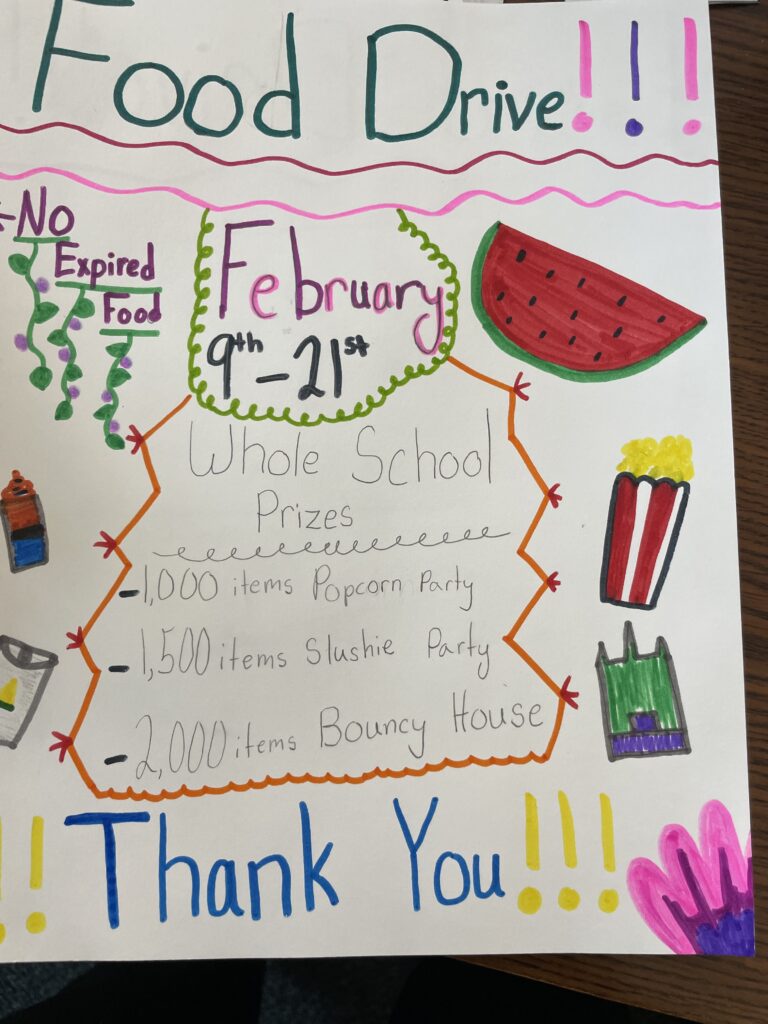 Food Drive!!!
-No
Expired
Food
February
9th - 21st
Whole School
Prizes
- 1,000 items Popcorn Party
- 1,500 items Slushie Party
- 2,000 items Bouncy House
!! Thank You!!!